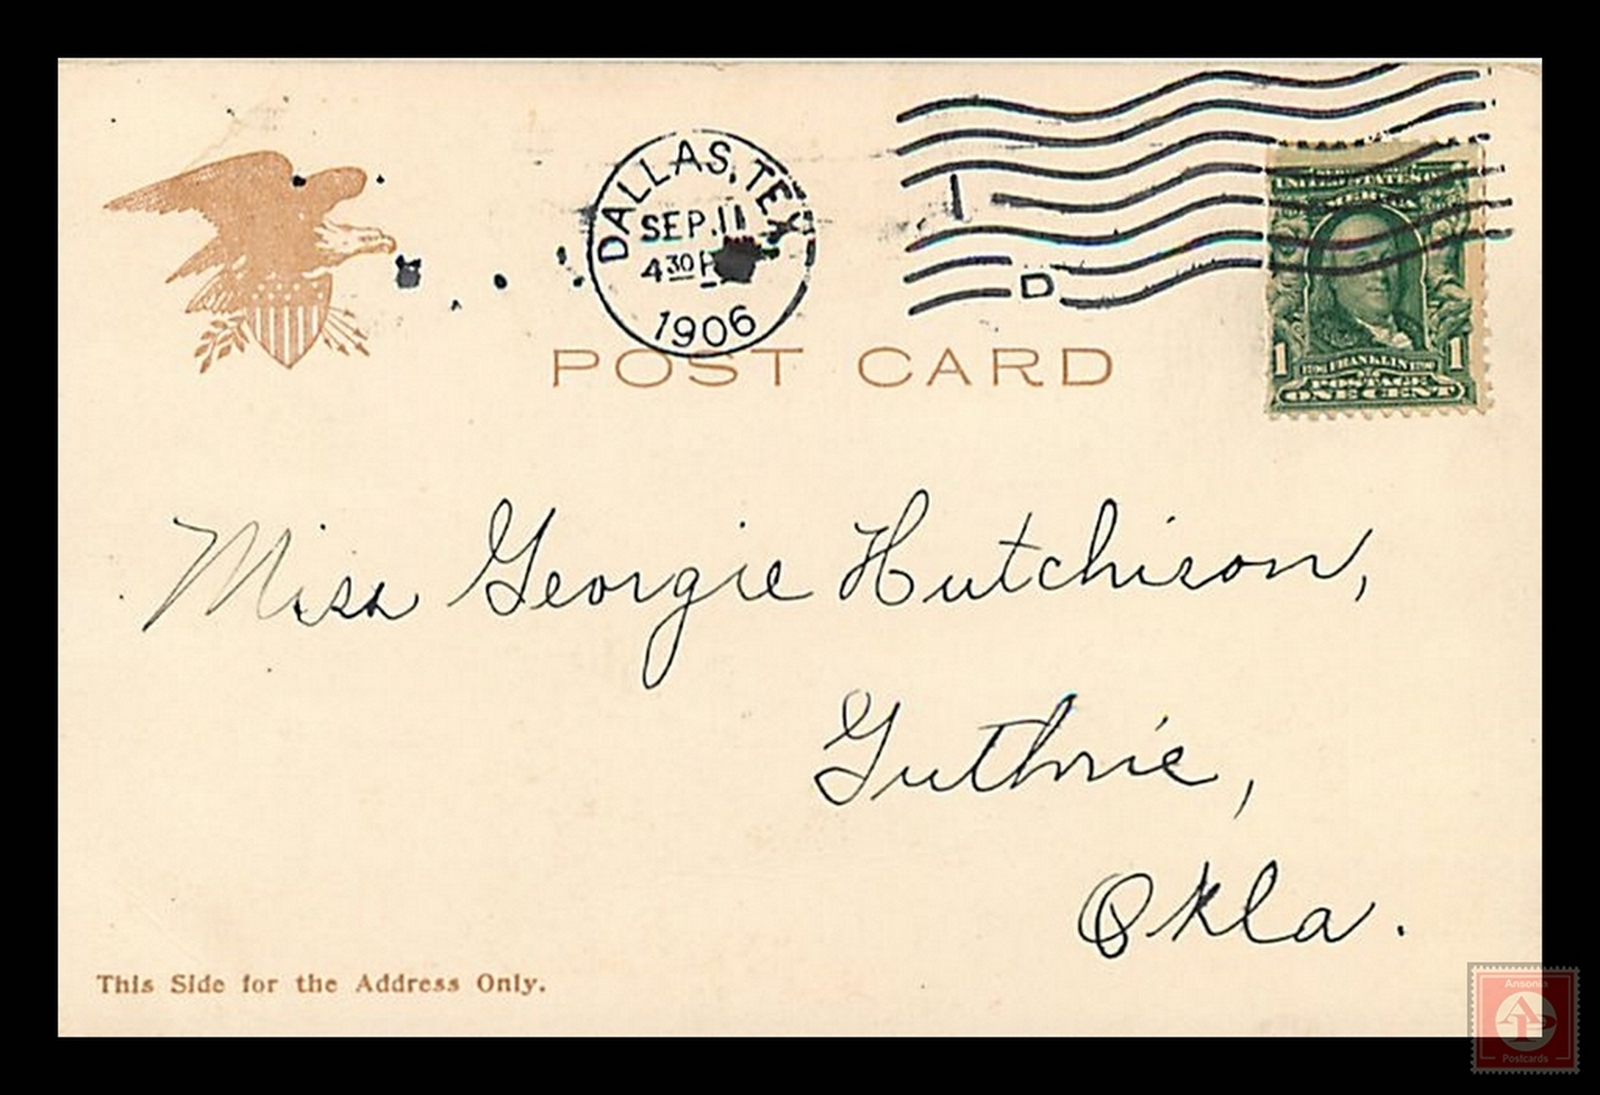 DALLAS, TEX.
SEP. 11
4 30 P
1906
1
D
UNITED STATES OF
AMERICA
1 1790 FRANKLIN 1790 1
POSTAGE
ONE CENT
POST CARD
Miss Georgie Hutchison,
Guthrie,
Okla.
This Side for the Address Only.
Ansonia
AP
Postcards